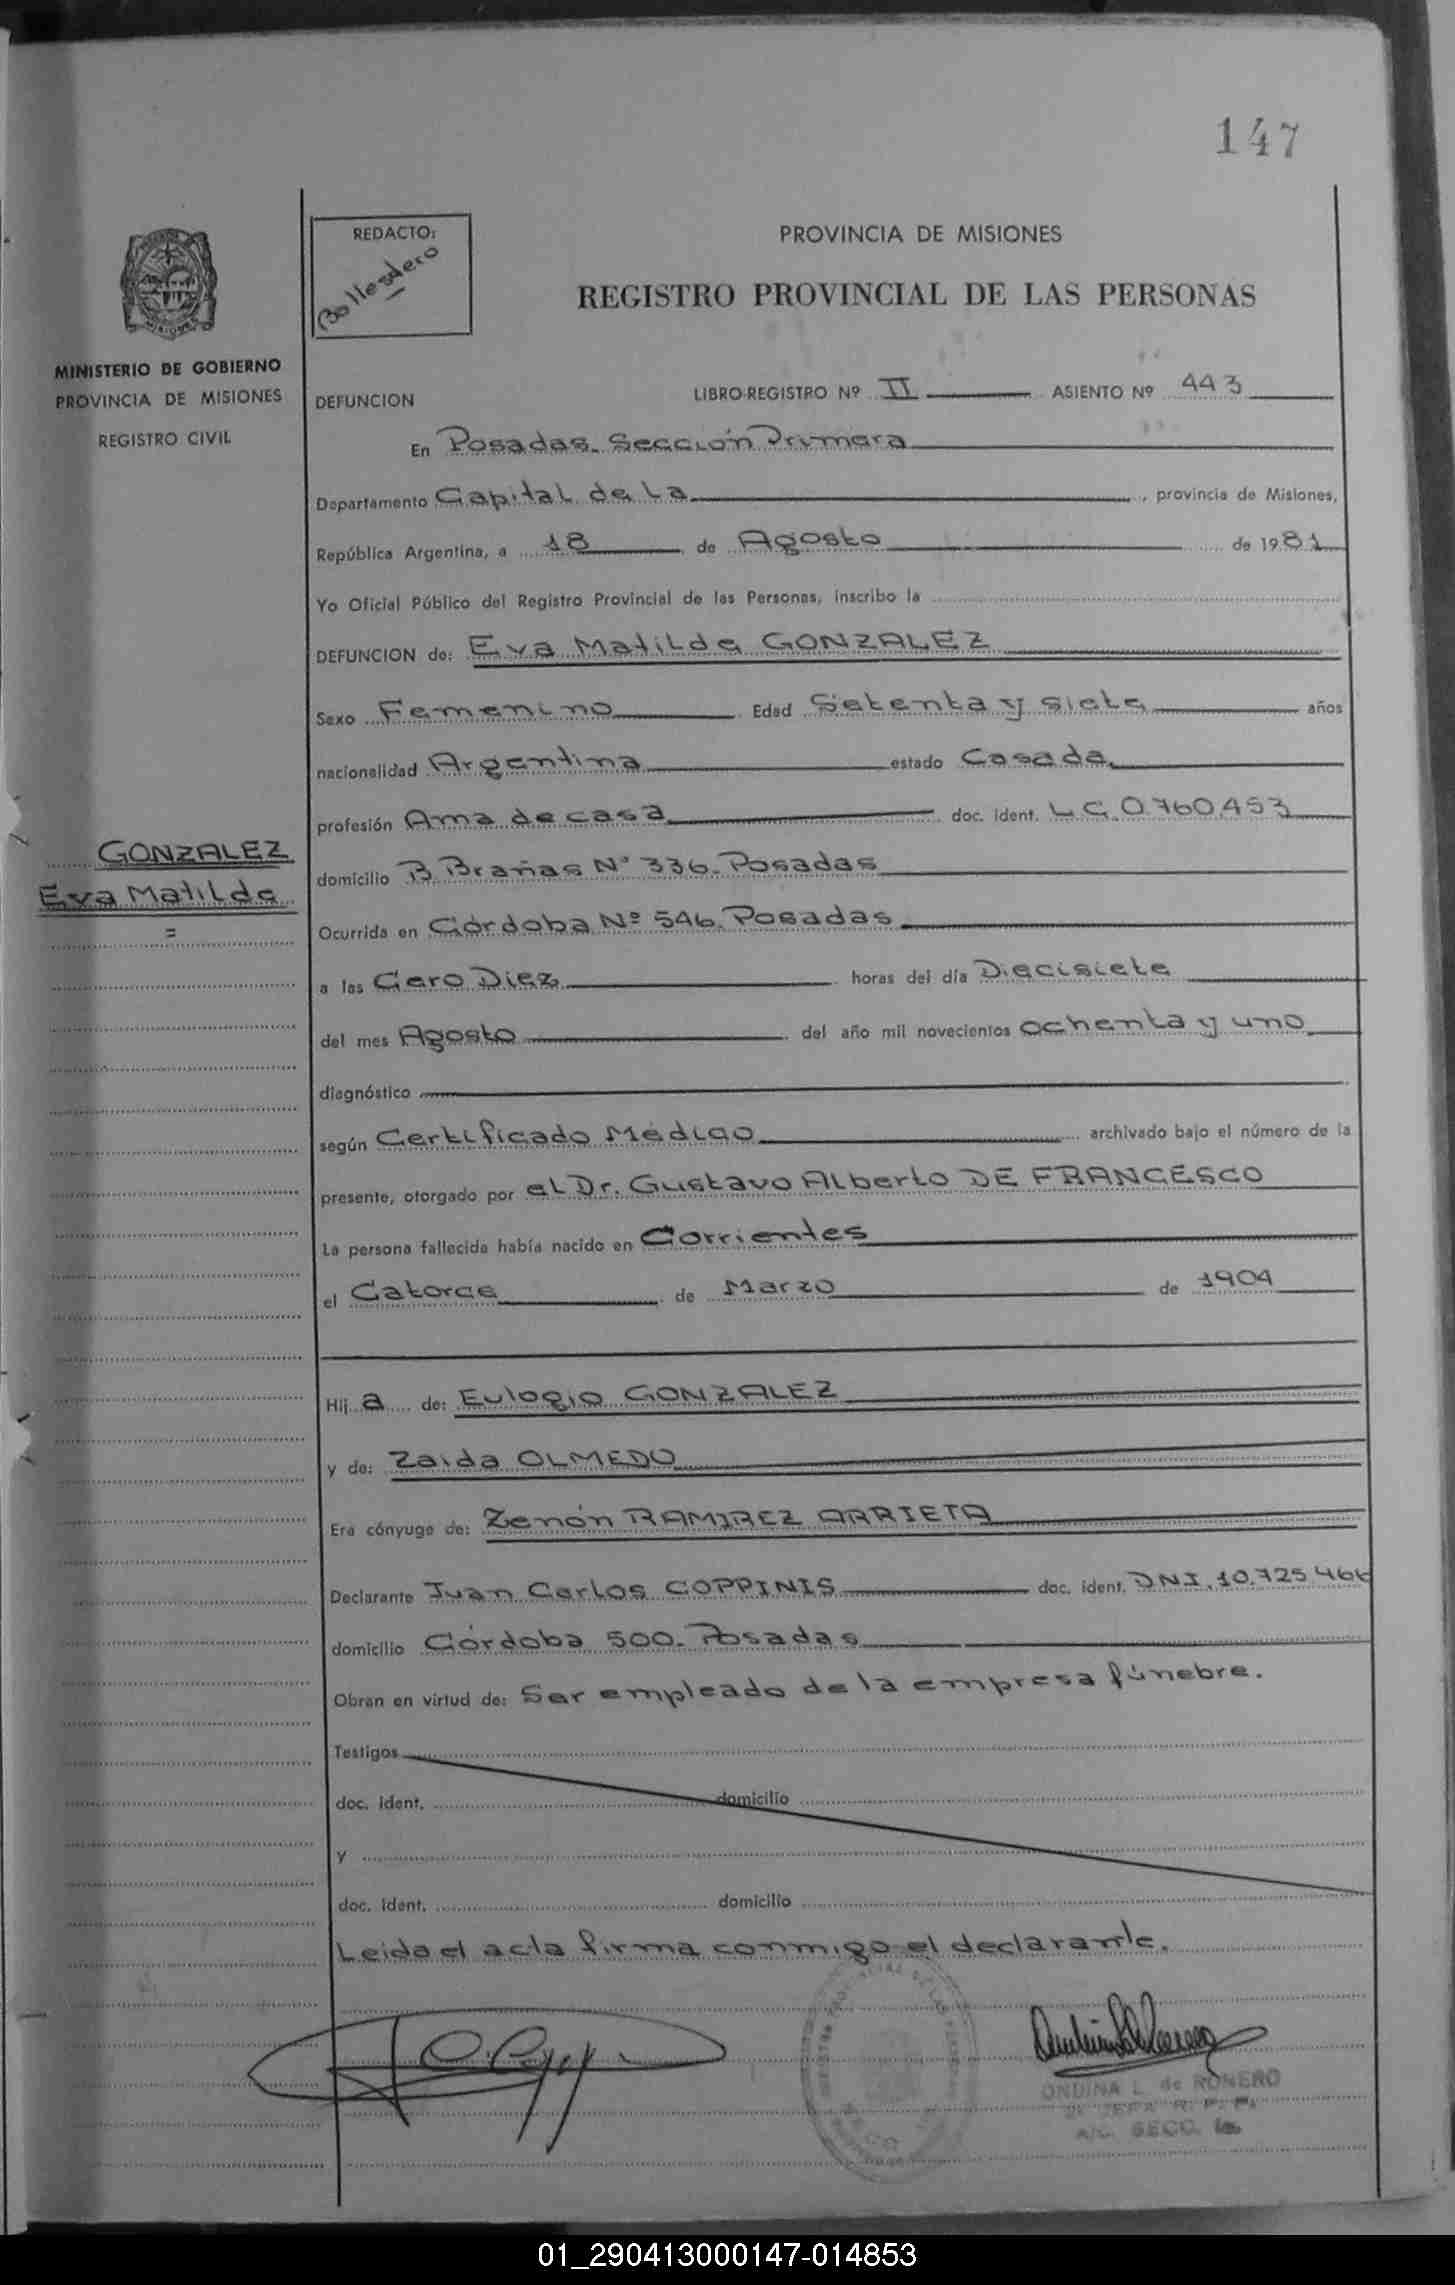 147
REDACTO:
Ballesdero
PROVINCIA DE MISIONES
REGISTRO PROVINCIAL DE LAS PERSONAS
MISIONES
MINISTERIO DE GOBIERNO
PROVINCIA DE MISIONES
REGISTRO CIVIL
DEFUNCION LIBRO-REGISTRO Nº II ASIENTO Nº 443
En Posadas. Sección Primera
Departamento Capital de La, provincia de Misiones,
República Argentina, a 18 de Agosto de 1981
Yo Oficial Público del Registro Provincial de las Personas, inscribo la
DEFUNCION de: Eva Matilde GONZALEZ
Sexo Femenino Edad Setenta y siete años
nacionalidad Argentina estado Casada
profesión Ama de casa doc. ident. L.C. 0.760.453
GONZALEZ
Eva Matilde
=
domicilio B. Brañas Nº 336. Posadas
Ocurrida en Córdoba Nº 546. Posadas
a las Cero Diez horas del día Diecisiete
del mes Agosto del año mil novecientos ochenta y uno
diagnóstico
según Certificado Médico archivado bajo el número de la
presente, otorgado por el Dr. Gustavo Alberto DE FRANCESCO
La persona fallecida había nacido en Corrientes
el Catorce de Marzo de 1904
Hij a de: Eulogio GONZALEZ
y de: Zaida OLMEDO
Era cónyuge de: Zenón RAMIREZ ARRIETA
Declarante Juan Carlos COPPINIS doc. ident. DNI. 10.725.466
domicilio Córdoba 500. Posadas
Obran en virtud de: Ser empleado de la empresa fúnebre.
Testigos
doc. ident. domicilio
y
doc. ident. domicilio
Leida el acta firma conmigo el declarante.
ONDINA L. de ROMERO
2º JEFA R. P. P.
A/C. SECC. 1a
01_290413000147-014853